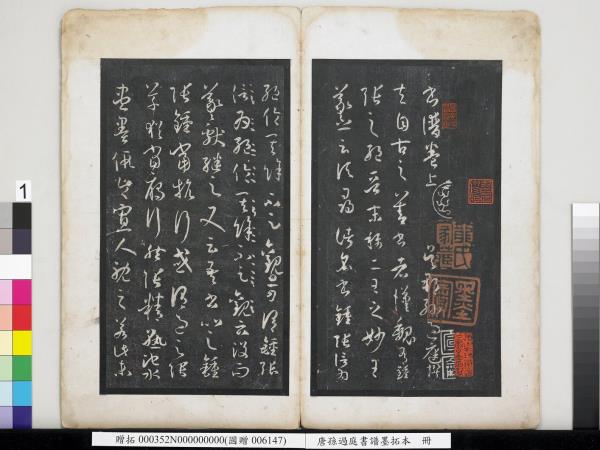 書譜卷上
吳郡孫過庭撰
夫自古之善書者漢魏有鍾
張之絕晉末稱二王之妙王
羲之云頃尋諸名書鍾張信為
絕倫其餘不足觀可謂鍾張
信為絕倫其餘不足觀云沒而
羲獻繼之又云吾書比之鍾
張鍾當抗行或謂過之張
草猶當鴈行然張精熟池水
盡墨假令寡人耽之若此未
1
贈拓 000352N000000000(國贈 006147)
唐孫過庭書譜墨拓本 冊